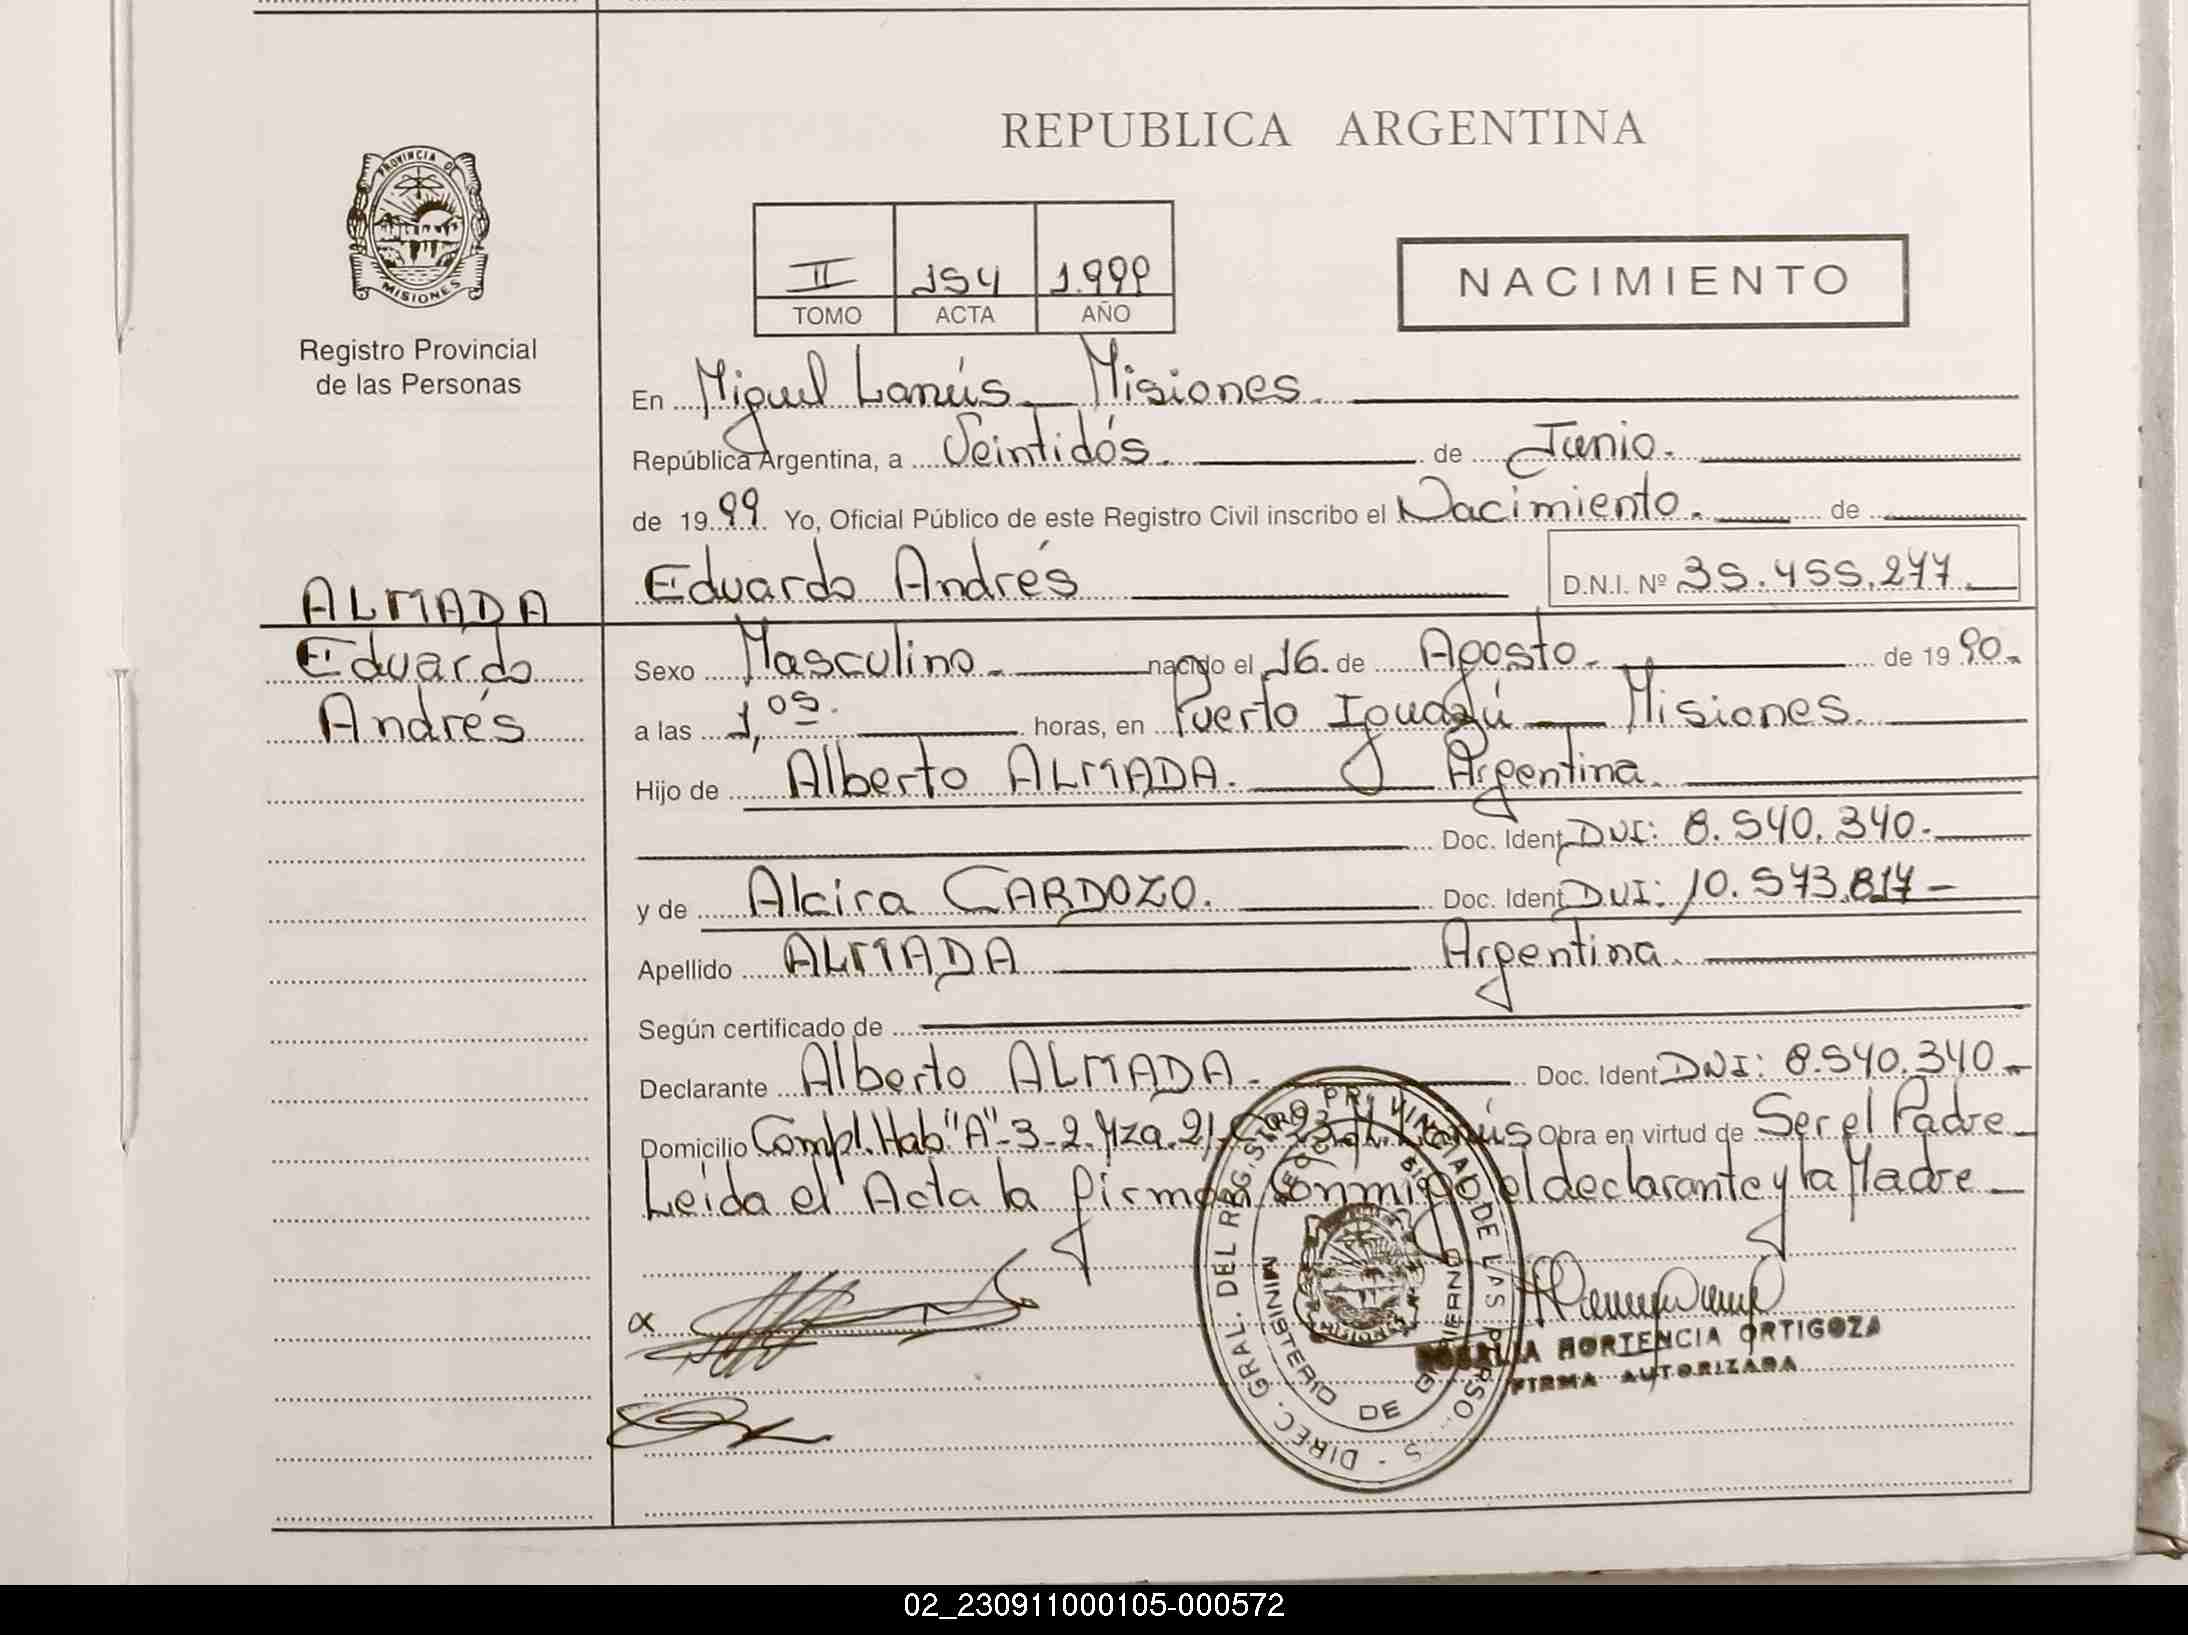 REPUBLICA ARGENTINA
PROVINCIA DE
MISIONES
Registro Provincial
de las Personas
II 154 1.999
TOMO ACTA AÑO
NACIMIENTO
En Miguel Lanús - Misiones.
República Argentina, a Veintidós. de Junio.
de 1999. Yo, Oficial Público de este Registro Civil inscribo el Nacimiento. de
Eduardo Andrés D.N.I. Nº 35.455.277
ALMADA
Eduardo
Andrés
Sexo Masculino. nacido el 16. de Agosto. de 1990.
a las 1,05. horas, en Puerto Iguazú - Misiones.
Hijo de Alberto ALMADA. Argentina.
Doc. Ident DNI: 8.540.340.
y de Alcira CARDOZO. Doc. Ident DNI: 10.573.817-
Apellido ALMADA Argentina.
Según certificado de
Declarante Alberto ALMADA. Doc. Ident DNI: 8.540.340.
Domicilio Compl. Hab "A"-3-2. Mza. 21- Lanús Obra en virtud de Ser el Padre
Leída el Acta la firman Conmigo el declarante y la Madre
DIREC. GRAL. DEL REGISTRO PROVINCIAL DE LAS PERSONAS
MINISTERIO DE GOBIERNO
HORTENCIA ORTIGOZA
FIRMA AUTORIZADA
02_230911000105-000572